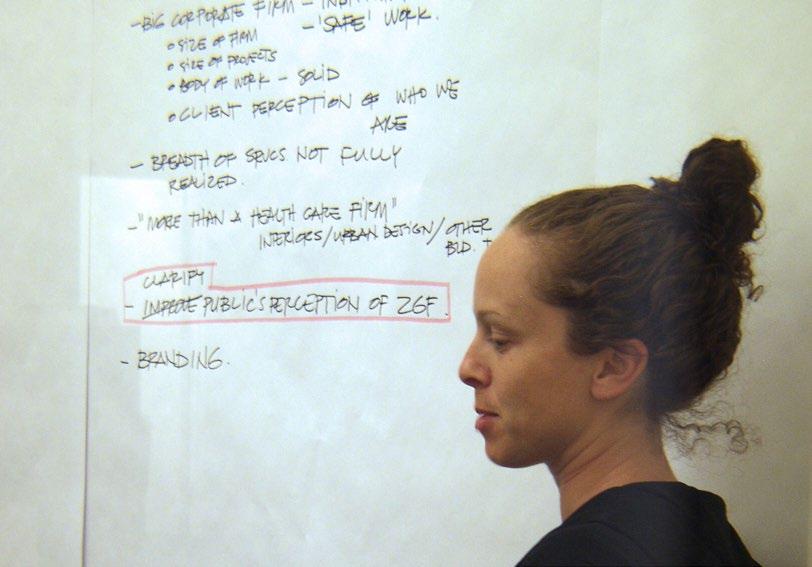 - BIG CORPORATE FIRM -
- 'SAFE' WORK.
• SIZE OF FIRM
• SIZE OF PROJECTS
• BODY OF WORK - SOLID
• CLIENT PERCEPTION OF WHO WE
ARE
- BREADTH OF SRVCS NOT FULLY
REALIZED.
- "MORE THAN A HEALTH CARE FIRM"
INTERIORS/URBAN DESIGN/OTHER
BLD. +
CLARIFY
- IMPROVE PUBLIC'S PERCEPTION OF ZGF.
- BRANDING.